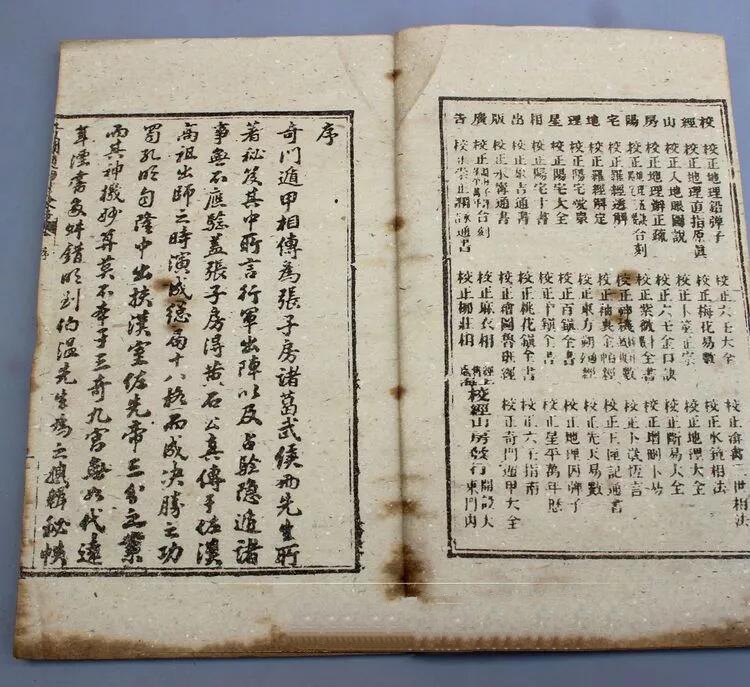 校經山房陽宅地理星相出版廣告
校正地理鉛彈子
校正地理直指原眞
校正人地眼圖說
校正地理辦正疏
校正羅經透解
校正羅經解定
校正陽宅愛衆
校正陽宅大全
校正陽宅十書
校正象吉通書
校正永寧通書
校正六壬大全
校正梅花易數
校正卜筮正宗
校正六壬金口訣
校正紫微
全書
校正東方朔
經
校正百鎮全書
校正
鎮全書
校正桃花鎮全書
校正繪圖魯班經
校正麻衣相
校正柳莊相
二世相法
校正水鏡相法
校正地理大全
校正斷易大全
校正增刪卜易
校正卜
恆言
校正玉匣記通書
校正先天易數
校正地理四彈子
校正星平萬年厯
校正六壬指南
校正奇門遁甲大全
校經山房發行
開設大東門內
序
奇門遁甲相傳爲張子房諸葛武侯兩先生所
著秘笈其中所言行軍出陣以及占驗隱遁諸
事無不應驗蓋張子房得黃石公真傳于佐漢
高祖出師之時演成總局十八格而成決勝之功
蜀孔明自隆中出扶漢室佐先帝三分之業
而其神機妙算莫不本于三奇九宮無如代遠
年湮書多舛錯明劉伯温先生爲之
輯秘帙